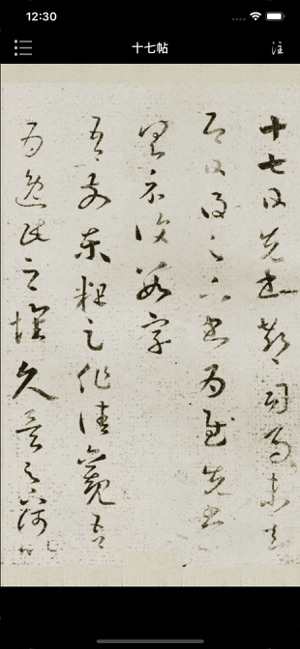 12:30
十七帖
注
十七日先書郗司馬未去
即日得足下書為慰先書以
具示復數字
吾前東粗足作佳觀吾
為逸民之懷久矣足下何以